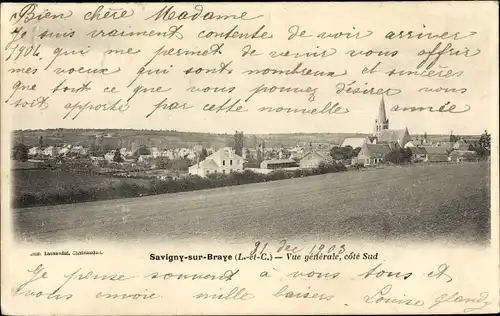 Bien chère Madame
Je suis vraiment contente de voir arriver
1904 qui me permet de venir vous offrir
mes voeux qui sont nombreux et sincères
que tout ce que vous pouvez désirer vous
soit apporté par cette nouvelle année
Imp. Launay, Châteaudun.
Savigny-sur-Braye (L.-et-C.) — Vue générale, côté Sud
31 dec 1903
Je pense souvent à vous tous et
vous envoie mille baisers Louise